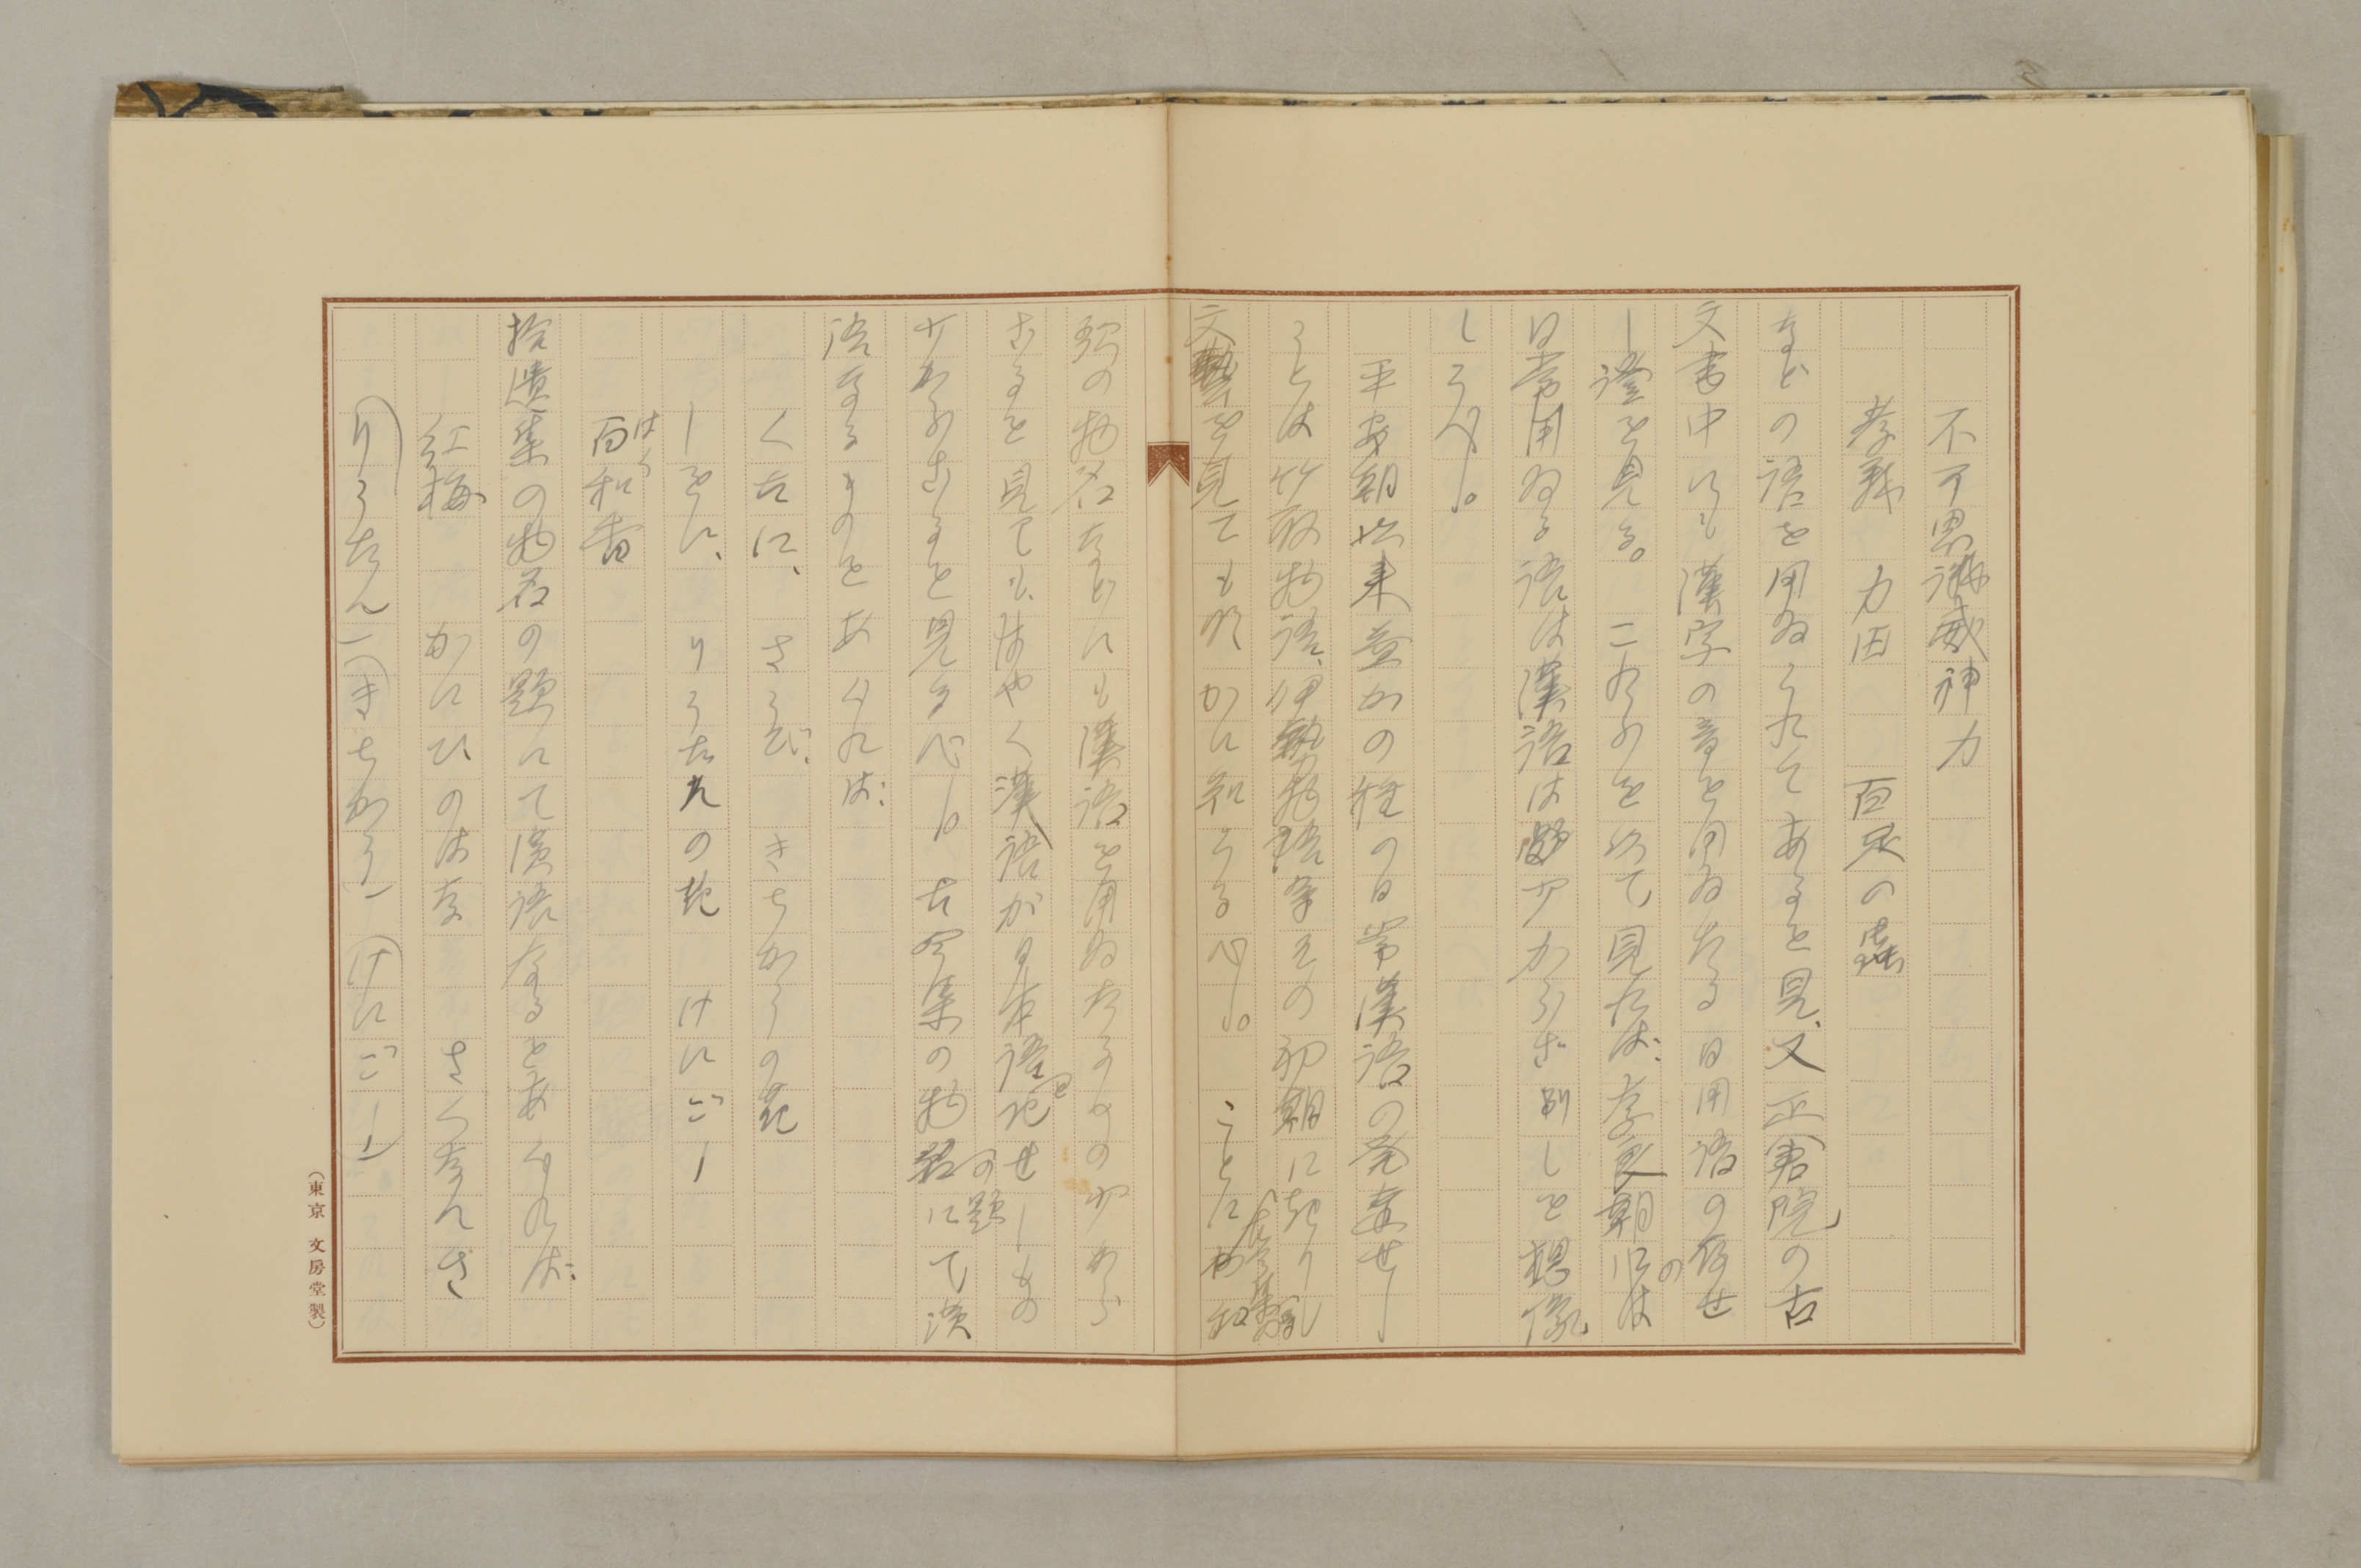 不可思議威神力
孝義 力田 百足の蟲
などの語を用ゐられてあると見、又正倉院の古
文書中にも漢字の音を用ゐたる日用語の存せ
し證を見る。これらを以て見れば、奈良朝には
日常用ゐる語は漢語は尠少からざりしを想像
しうべし。
平安朝以来 の日常漢語の発達せし
ことは竹取物語、伊勢物語等その初期に起りし
文藝を見ても明かに知らるべし。ことに古今和
歌の物名などにも漢語を用ゐたるものの少から
ざるを見ても、はやく漢語が日本語と化せしもの
少からざることを見るべし。古今集の物名の題にて漢
語なるものをあぐれば、
くたに、さうび、きちかうの花
しをに、りうたんの花 けにごし
百和香 はく
拾遺集の物名の題にて漢語なるをあぐれば、
紅梅 かにひのはな さくなんさ
(りうたん)(きちかう)(けにごし)
(東京 文房堂製)